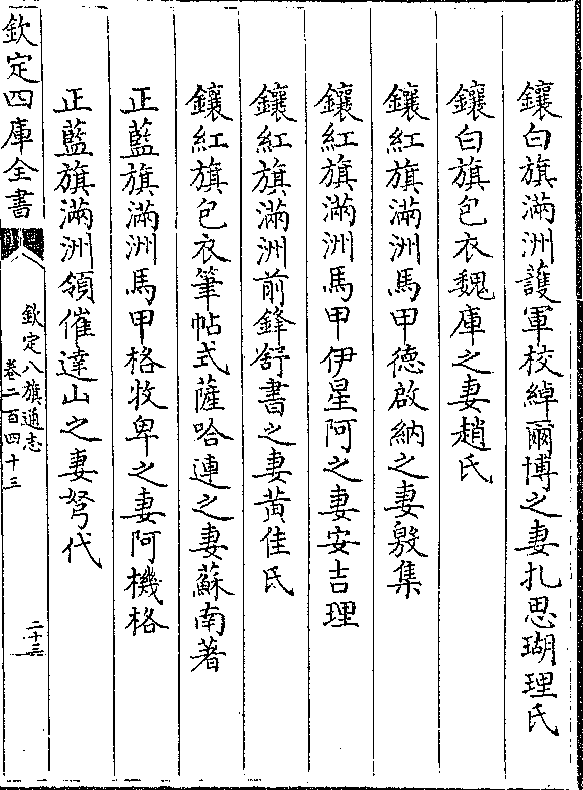 鑲白旗滿洲護軍校綽爾博之妻扎思瑚理氏
鑲白旗包衣魏庫之妻趙氏
鑲紅旗滿洲馬甲德啟納之妻殷集
鑲紅旗滿洲馬甲伊星阿之妻安吉理
鑲紅旗滿洲前鋒舒書之妻黃佳氏
鑲紅旗包衣筆帖式薩哈連之妻蘇南著
正藍旗滿洲馬甲格牧卑之妻阿機格
正藍旗滿洲領催達山之妻弩代
欽定四庫全書
欽定八旗通志
卷二百四十三
二十三